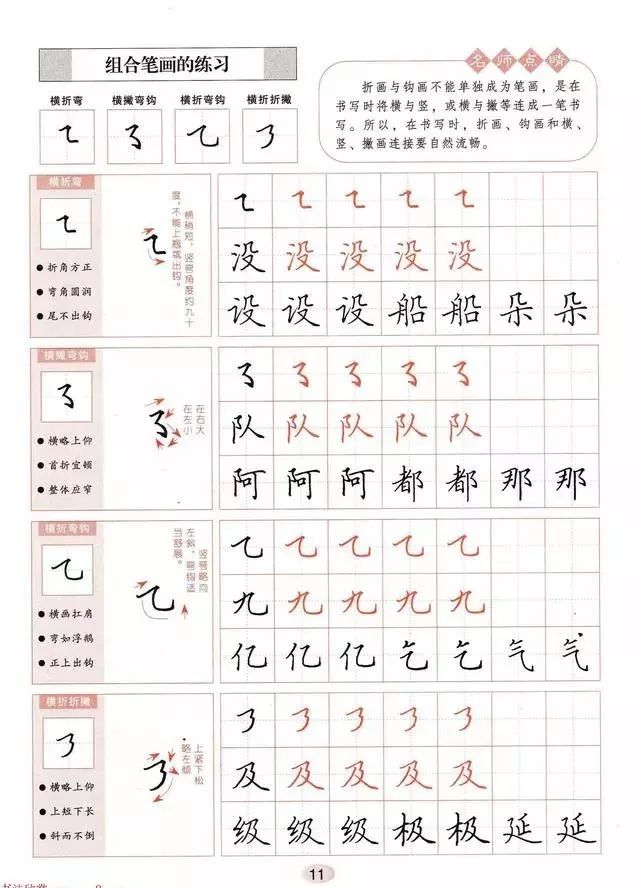 组合笔画的练习
名师点睛
折画与钩画不能单独成为笔画，是在
书写时将横与竖，或横与撇等连成一笔书
写。所以，在书写时，折画、钩画和横、
竖、撇画连接要自然流畅。
横折弯 横撇弯钩 横折弯钩 横折折撇
㇍ ㇌ 乙 ㇋
横折弯
㇍
折角方正
弯角圆润
尾不出钩
㇍
横稍短，竖弯角度约九十
度，不能上翘或出钩。
㇍ ㇍ ㇍ ㇍ ㇍
没 没 没 没 没
设 设 设 船 船 朵 朵
横撇弯钩
㇌
横略上仰
首折宜顿
整体应窄
㇌
在右大
在左小
㇌ ㇌ ㇌ ㇌ ㇌
队 队 队 队 队
阿 阿 阿 都 都 那 那
横折弯钩
乙
横画扛肩
弯如浮鹅
正上出钩
乙
竖弯略向
左斜，弯钩适
当舒展。
乙 乙 乙 乙 乙
九 九 九 九 九
亿 亿 亿 乞 乞 气 气
横折折撇
㇋
横略上仰
上短下长
斜而不倒
㇋
上紧下松
略左倾
㇋ ㇋ ㇋ ㇋ ㇋
及 及 及 及 及
级 级 级 极 极 延 延
11